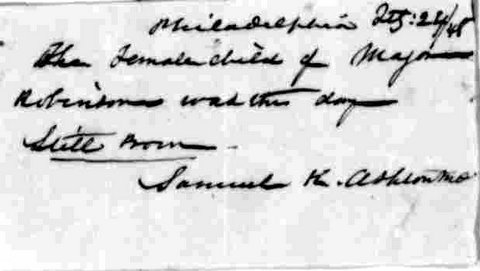 Philadelphia Feb: 24/48
The Female child of Major
Robinson was this day
Still Born
Samuel K. Ashton MD